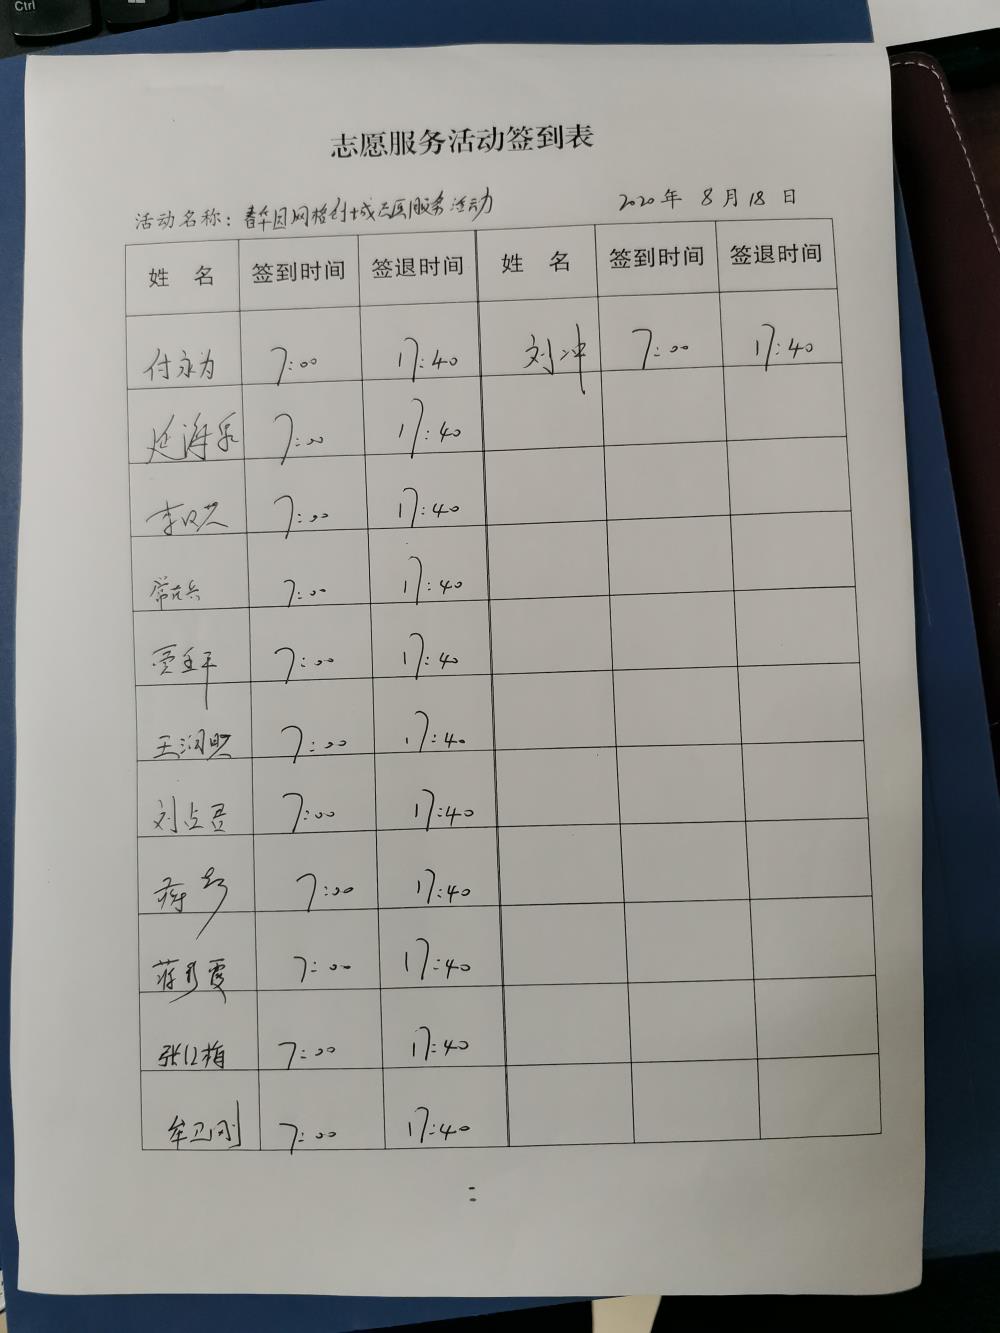 Ctrl
志愿服务活动签到表
活动名称：春华园网格创城志愿服务活动 2020年 8月18日
姓 名 签到时间 签退时间 姓 名 签到时间 签退时间
付永为 7:00 17:40 刘冲 7:00 17:40
延海泉 7:00 17:40
7:00 17:40
7:00 17:40
贾玉平 7:00 17:40
王润明 7:00 17:40
刘占君 7:00 17:40
7:00 17:40
蒋彩霞 7:00 17:40
张红梅 7:00 17:40
牟卫刚 7:00 17:40